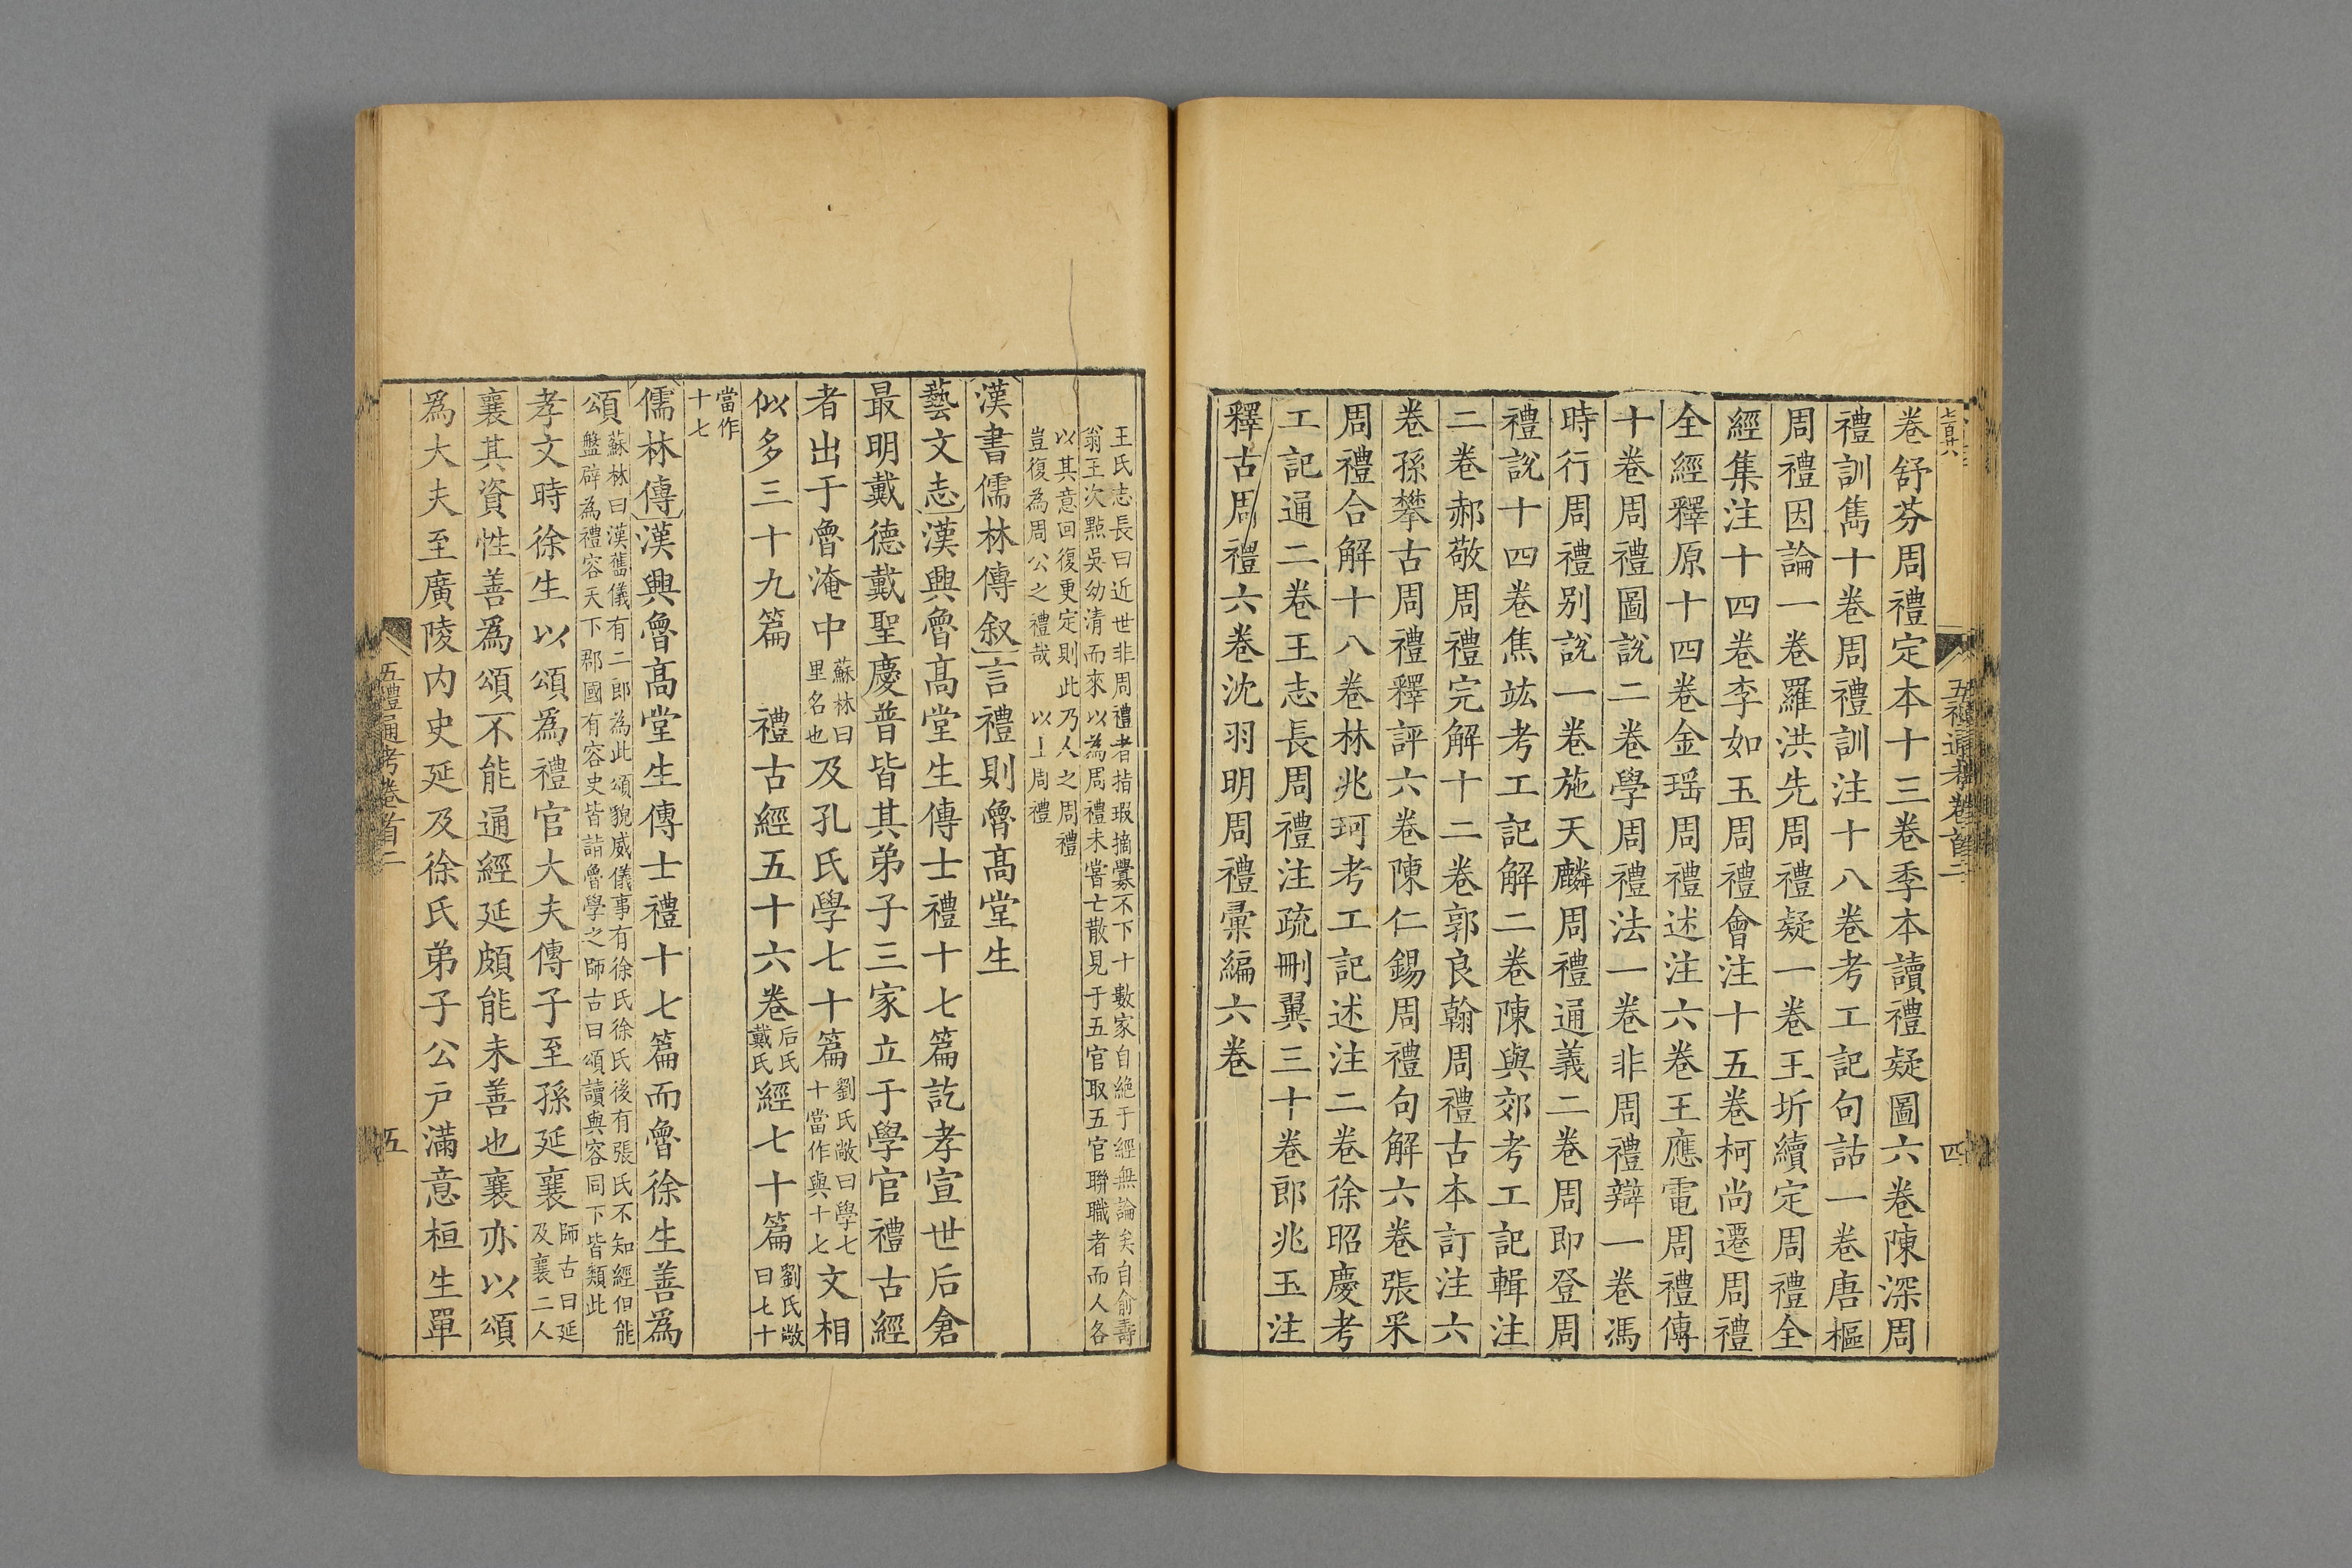 五禮通考卷首二
四
卷舒芬周禮定本十三卷季本讀禮疑圖六卷陳深周
禮訓雋十卷周禮訓注十八卷考工記句詁一卷唐樞
周禮因論一卷羅洪先周禮疑一卷王圻續定周禮全
經集注十四卷李如玉周禮會注十五卷柯尚遷周禮
全經釋原十四卷金瑶周禮述注六卷王應電周禮傳
十卷周禮圖說二卷學周禮法一卷非周禮辯一卷馮
時行周禮别說一卷施天麟周禮通義二卷周即登周
禮說十四卷焦竑考工記解二卷陳與郊考工記輯注
二卷郝敬周禮完解十二卷郭良翰周禮古本訂注六
卷孫攀古周禮釋評六卷陳仁錫周禮句解六卷張采
周禮合解十八卷林兆珂考工記述注二卷徐昭慶考
工記通二卷王志長周禮注疏刪翼三十卷郎兆玉注
釋古周禮六卷沈羽明周禮彙編六卷
王氏志長曰近世非周禮者指瑕摘釁不下十數家自絶于經無論矣自俞壽
翁王次點吳幼清而來以為周禮未嘗亡散見于五官取五官聯職者而人各
以其意回復更定則此乃人之周禮
豈復為周公之禮哉　以上周禮
漢書儒林傳叙言禮則魯高堂生
藝文志漢興魯高堂生傳士禮十七篇訖孝宣世后倉
最明戴德戴聖慶普皆其弟子三家立于學官禮古經
者出于魯淹中蘇林曰里名也及孔氏學七十篇劉氏敞曰學七十當作與十七文相
似多三十九篇　禮古經五十六卷后氏戴氏經七十篇劉氏敞曰七十
當作十七
儒林傳漢興魯高堂生傳士禮十七篇而魯徐生善為
頌蘇林曰漢舊儀有二郎為此頌貌威儀事有徐氏徐氏後有張氏不知經但能盤辟為禮容天下郡國有容史皆詣魯學之師古曰頌讀與容同下皆類此
孝文時徐生以頌為禮官大夫傳子至孫延襄師古曰延及襄二人
襄其資性善為頌不能通經延頗能未善也襄亦以頌
為大夫至廣陵内史延及徐氏弟子公户滿意桓生單
五禮通考卷首二
五